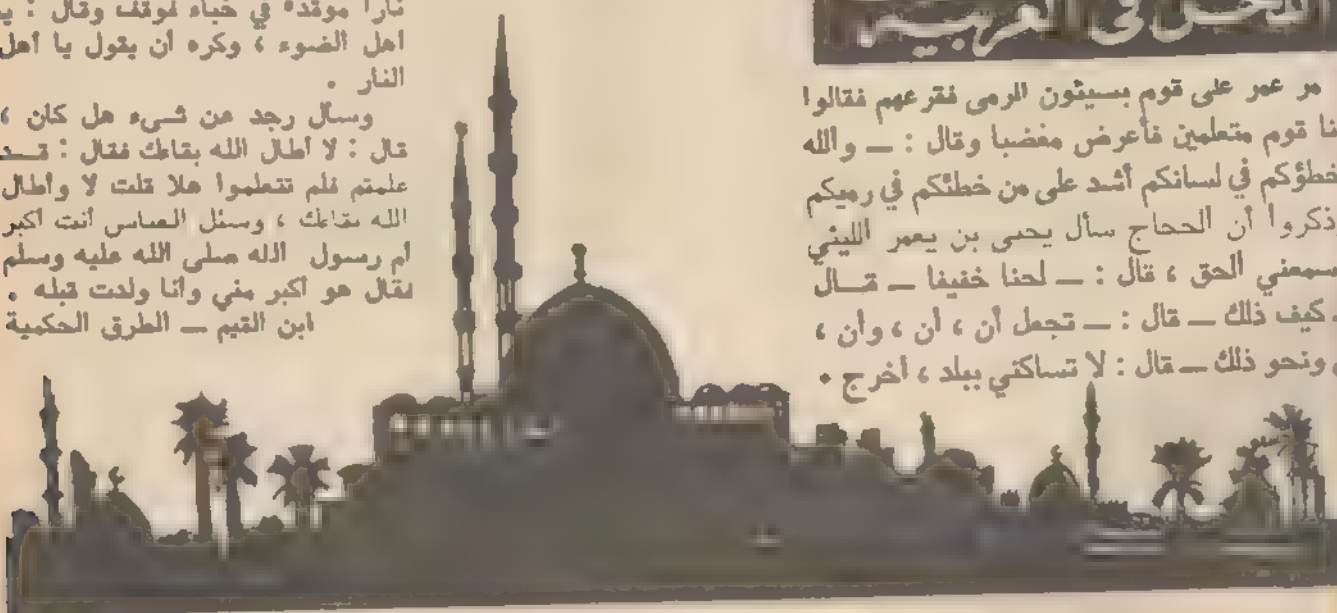 اللحن في العربية
مر عمر على قوم يسيئون الرمى فقرعهم فقالوا
نا قوم متعلمين فأعرض مغضبا وقال : — والله
خطؤكم في لسانكم أشد على من خطئكم في رميكم
ذكروا أن الحجاج سأل يحيى بن يعمر الليثي
سمعني الحق ، قال : — لحنا خفيفا — قال
كيف ذلك — قال : — تجعل أن ، أن ، وأن ،
ونحو ذلك — قال : لا تساكني ببلد ، أخرج .
نارا موقدة في خباء فوقف وقال :
أهل الضوء ، وكره أن يقول يا أهل
النار .
وسأل رجد عن شيء هل كان ،
قال : لا أطال الله بقاءك فقال : قد
علمتم فلم تتعلموا هلا قلت لا وأطال
الله بقاءك ، وسئل العباس أنت أكبر
أم رسول الله صلى الله عليه وسلم
فقال هو أكبر مني وأنا ولدت قبله .
ابن القيم — الطرق الحكمية